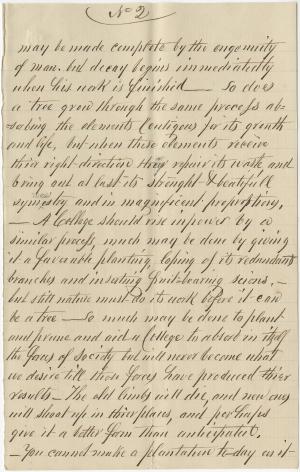 No 2
may be made complete by the engenuity
of man. but decay begins immediatedly
when his work is finishid — So does
a tree grow through the same process ab-
sorbing the elements Contigous for its growth
and life, but when these elements receive
thier right direction they repair its waste and
bring out at last its strenght & beatifull
symestry and in magnificent proportions.
— A College should rise in power by a
similar process, much may be done by giving
it a favourable planting, loping of its redundant
branches and inserting fruit-bearing scions. —
but still nature must do its work before it can
be a tree — So much may be done to plant
and prune and aid a College to absorb in itself
the forces of society but will never become what
we desire till these forces have produced thier
results — The old limbs will die, and new ones
will shoot up in thier places, and perhaps
give it a better form than anticipated.
— You cannot make a plantation to-day as it